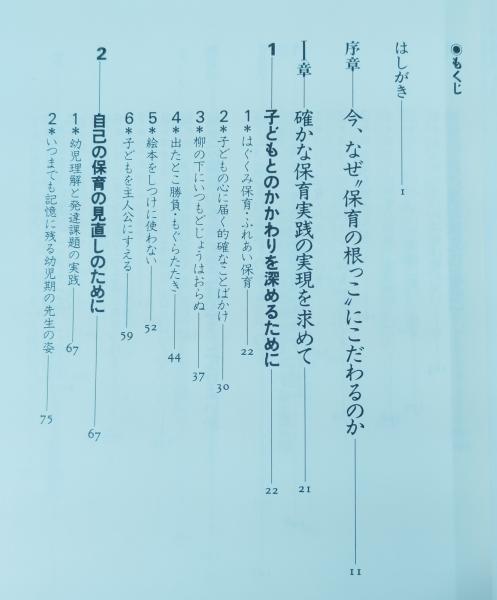 ◉もくじ
はしがき 1
序章 今、なぜ〝保育の根っこ〟にこだわるのか 11
Ⅰ章 確かな保育実践の実現を求めて 21
1 子どもとのかかわりを深めるために 22
1*はぐくみ保育・ふれあい保育 22
2*子どもの心に届く的確なことばかけ 30
3*柳の下にいつもどじょうはおらぬ 37
4*出たとこ勝負・もぐらたたき 44
5*絵本をしつけに使わない 52
6*子どもを主人公にすえる 59
2 自己の保育の見直しのために 67
1*幼児理解と発達課題の実践 67
2*いつまでも記憶に残る幼児期の先生の姿 75